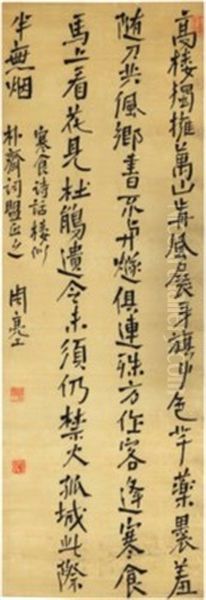 高楼獨擁萬山前風展牙旗色芊藥裹羞
隨刀共佩鄉書不與燧俱連殊方作客逢寒食
馬上看花見杜鵑遺令未須仍禁火孤城此際
半無烟
寒食诗話楼作
朴齋詞盟正之
周亮工